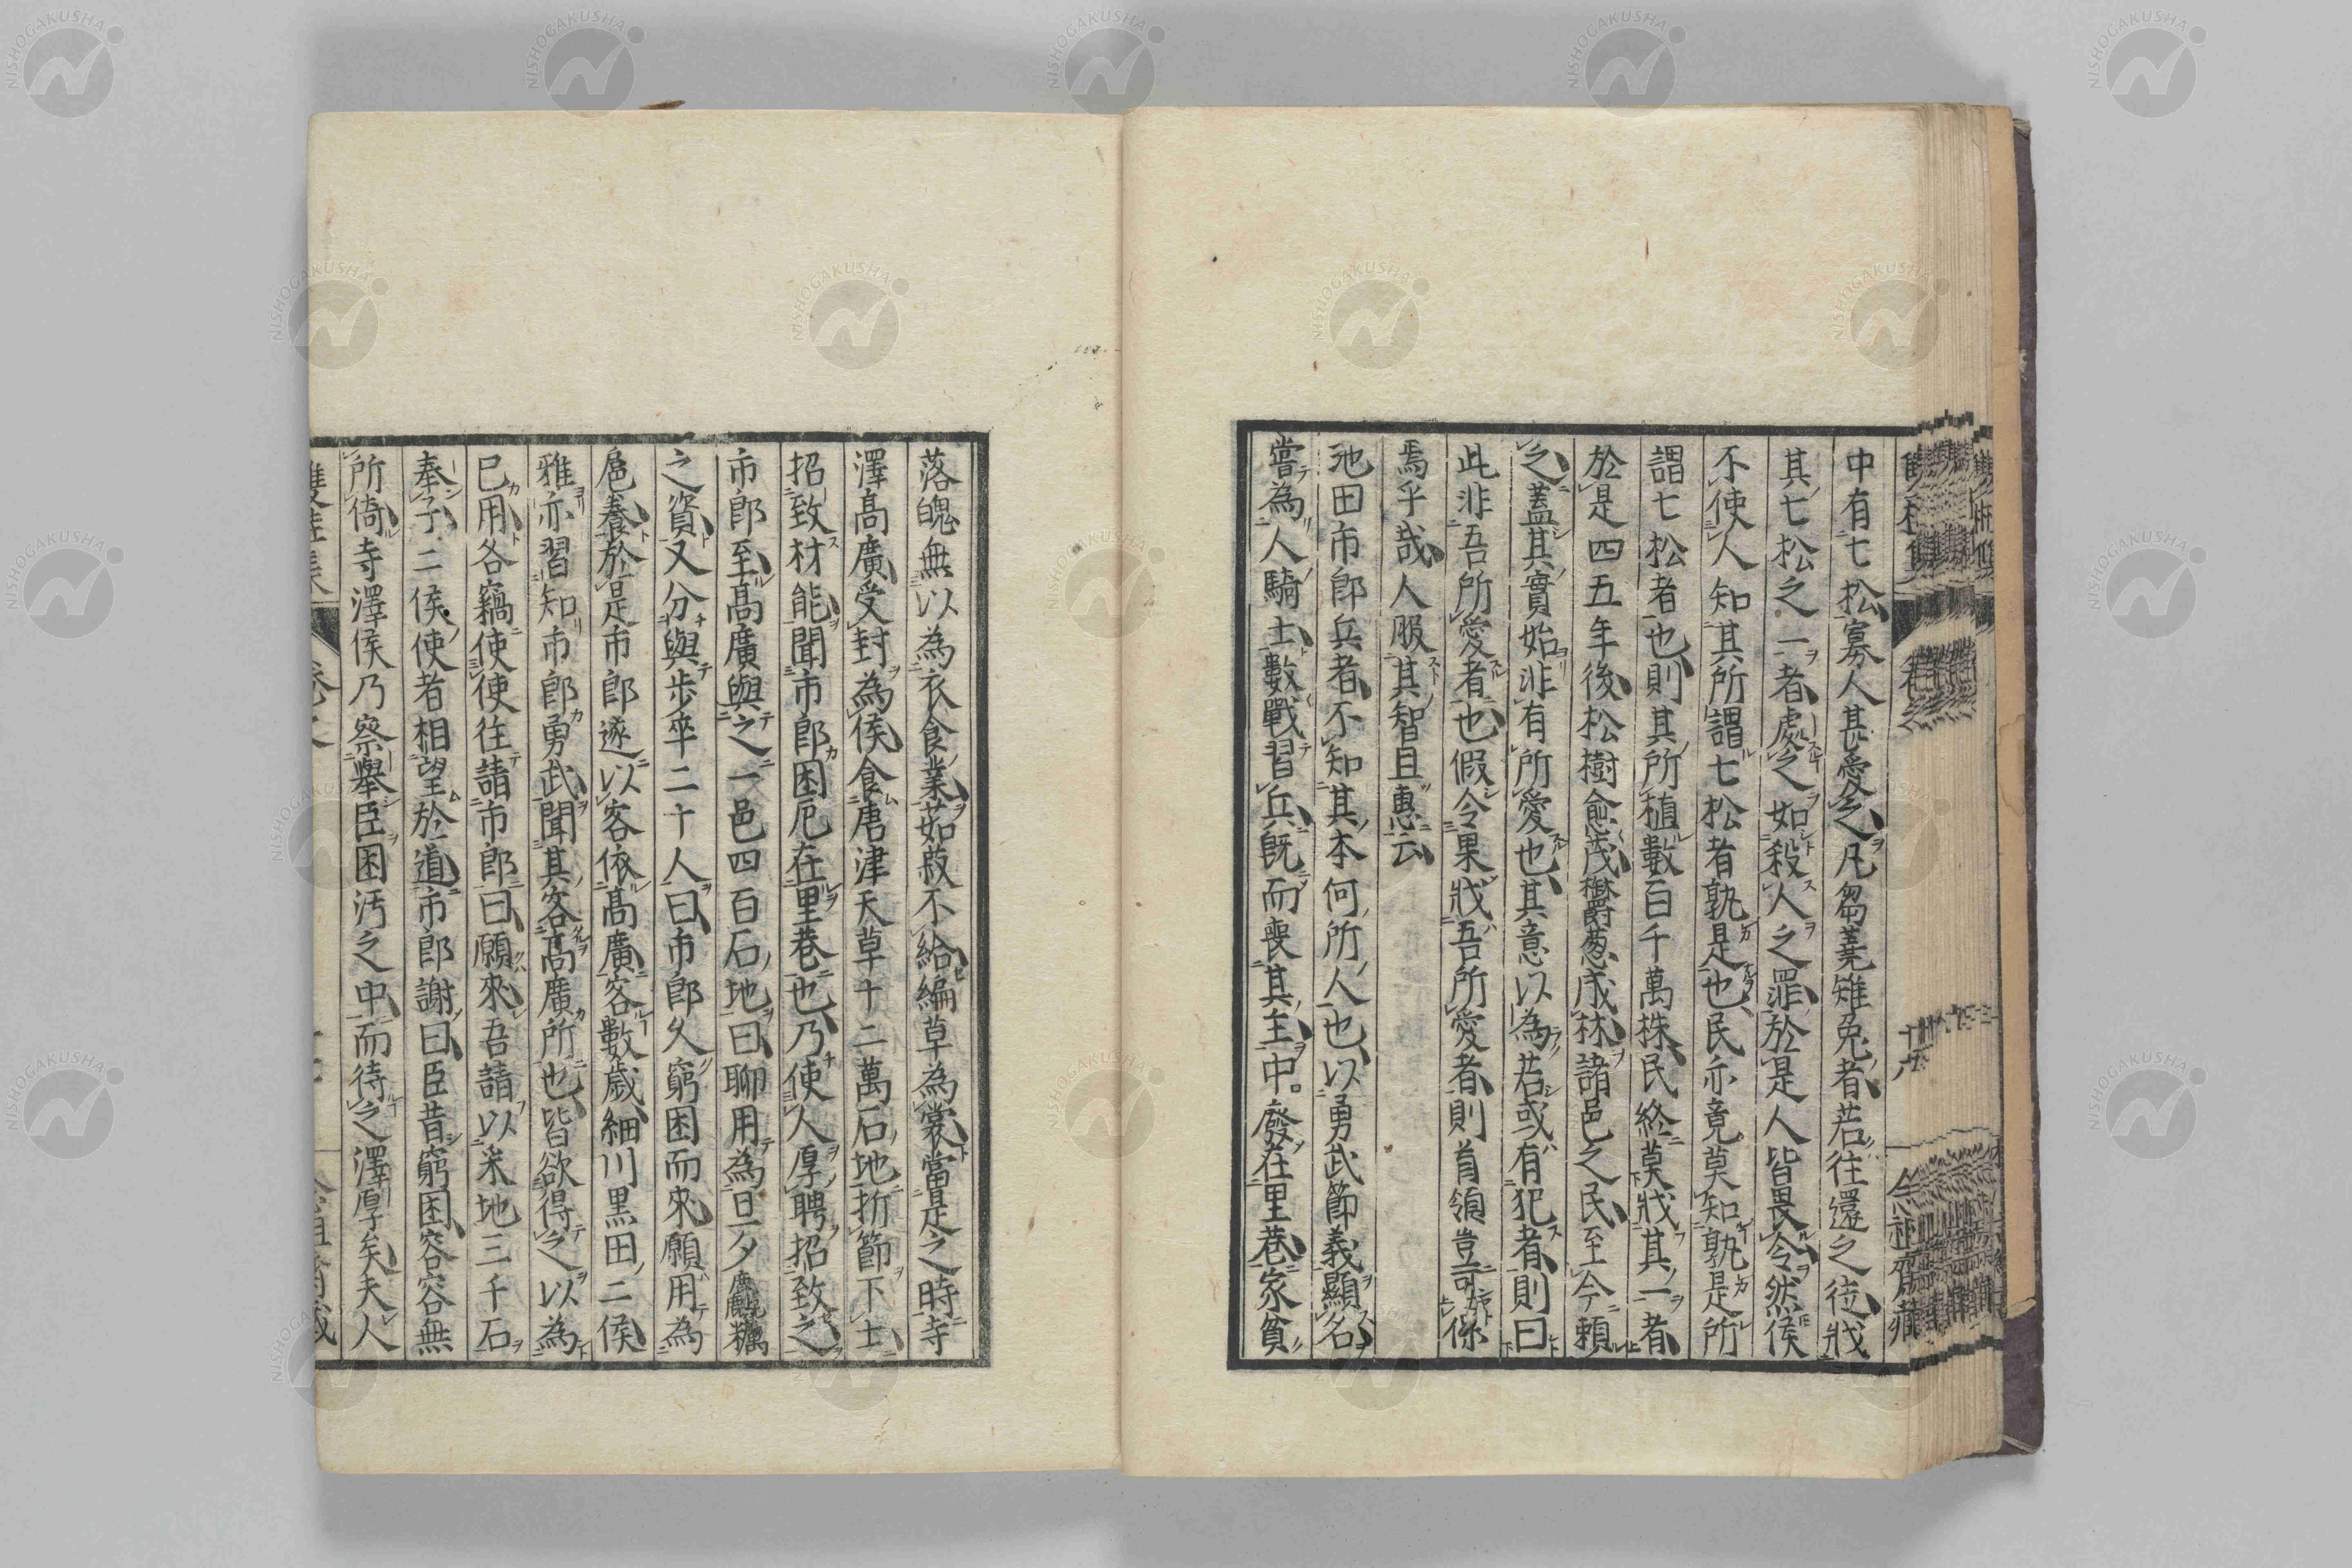 中有七松寡人甚愛之凡芻蕘雉兔者若往還之徒戕
其七松之一者處之如殺人之罪於是人皆畏令然侯
不使人知其所謂七松者孰是也民亦竟莫知孰是所
謂七松者也則其所植數百千萬株民終莫戕其一者
於是四五年後松樹愈茂欝葱成林諸邑之民至今賴
之蓋其實始非有所愛也其意以為若或有犯者則曰
此非吾所愛者也假令果戕吾所愛者則首領豈可係
焉乎哉人服其智且惠云
池田市郎兵者不知其本何所人也以勇武節義顯名
嘗為人騎士數戰習兵既而喪其主中廢在里巷家貧
落魄無以為衣食業茹菽不給編草為裳當是之時寺
澤高廣受封為侯食唐津天草十二萬石地折節下士
招致材能聞市郎困厄在里巷也乃使人厚聘招致之
市郎至高廣與之一邑四百石地曰聊用為旦夕麤糲
之資又分與步卒二十人曰市郎久窮困而來願用為
扈養於是市郎遂以客依高廣客數歲細川黑田二侯
雅亦習知市郎勇武聞其客高廣所也皆欲得之以為
已用各竊使使往請市郎曰願來吾請以釆地三千石
奉子二侯使者相望於道市郎謝曰臣昔窮困容容無
所倚寺澤侯乃察舉臣困汚之中而待之澤厚矣夫人
NISHOGAKUSHA